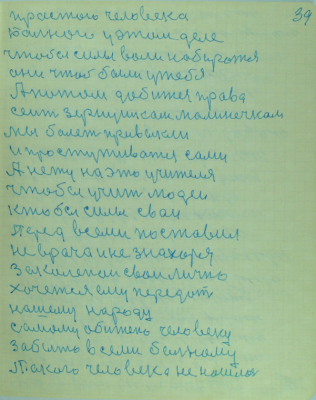 39
простого человека
Бального у этом деле
чтобы силы воли набиратся
они чтоб были у тебя
А потом добится права
сеит зернушкам малинечкам
мы болет привыкли
и простуживатся сами
А нету на это учителя
чтобы учит людей
ктобы силы сваи
Перед всеми поставил
не врача и не знахоря
Закалепом сваи лично
хочется ему передат
нашему народу
самому обижено человеку
забыто всеми бальному
Такого человека не нашлос